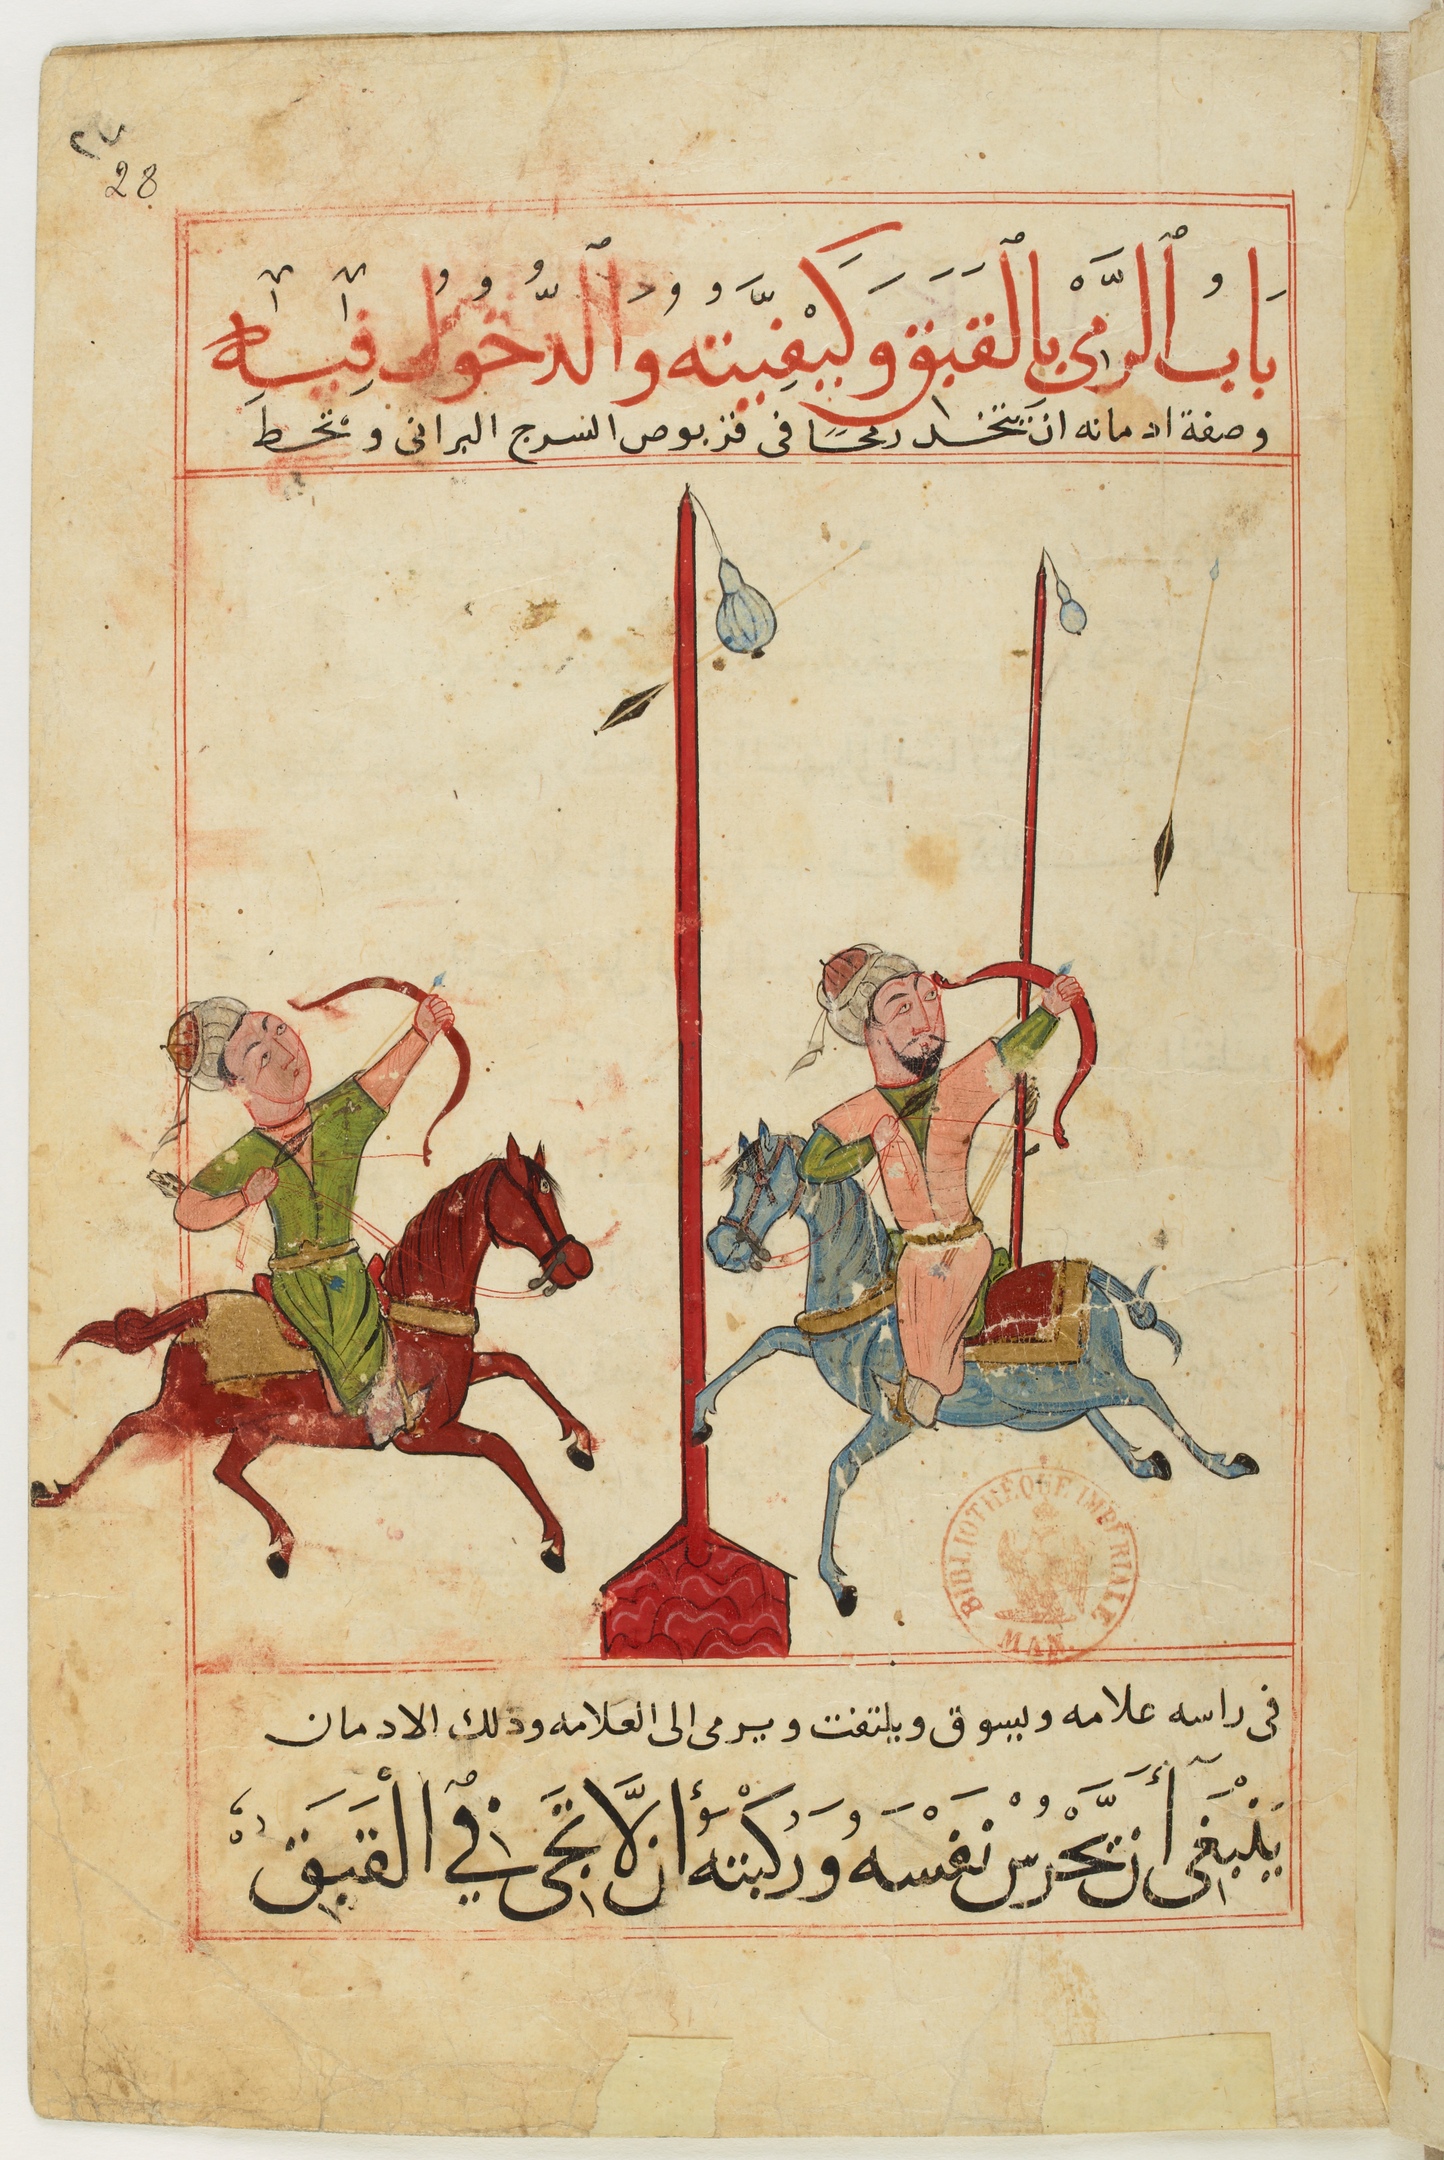 ٢٧
28
بَابُ ٱلرَّمْيِ بِالْقَبَقِ وَكَيْفِيَّتِهِ وَالدُّخُولُ فِيهِ
وصفة ادمانه ان يتخد رمحًا فى قربوص السرج البرانى وتحط
فى راسه علامه ويسوق ويلتفت ويرمى الى العلامه وذلك الادمان
يَنْبَغِى أَنْ تَحْرُسَ نَفْسَهُ وَرُكْبَتَهُ أن لَّا تَجِى فِي ٱلْقَبَقِ
BIBLIOTHEQUE IMPERIALE
MAN.